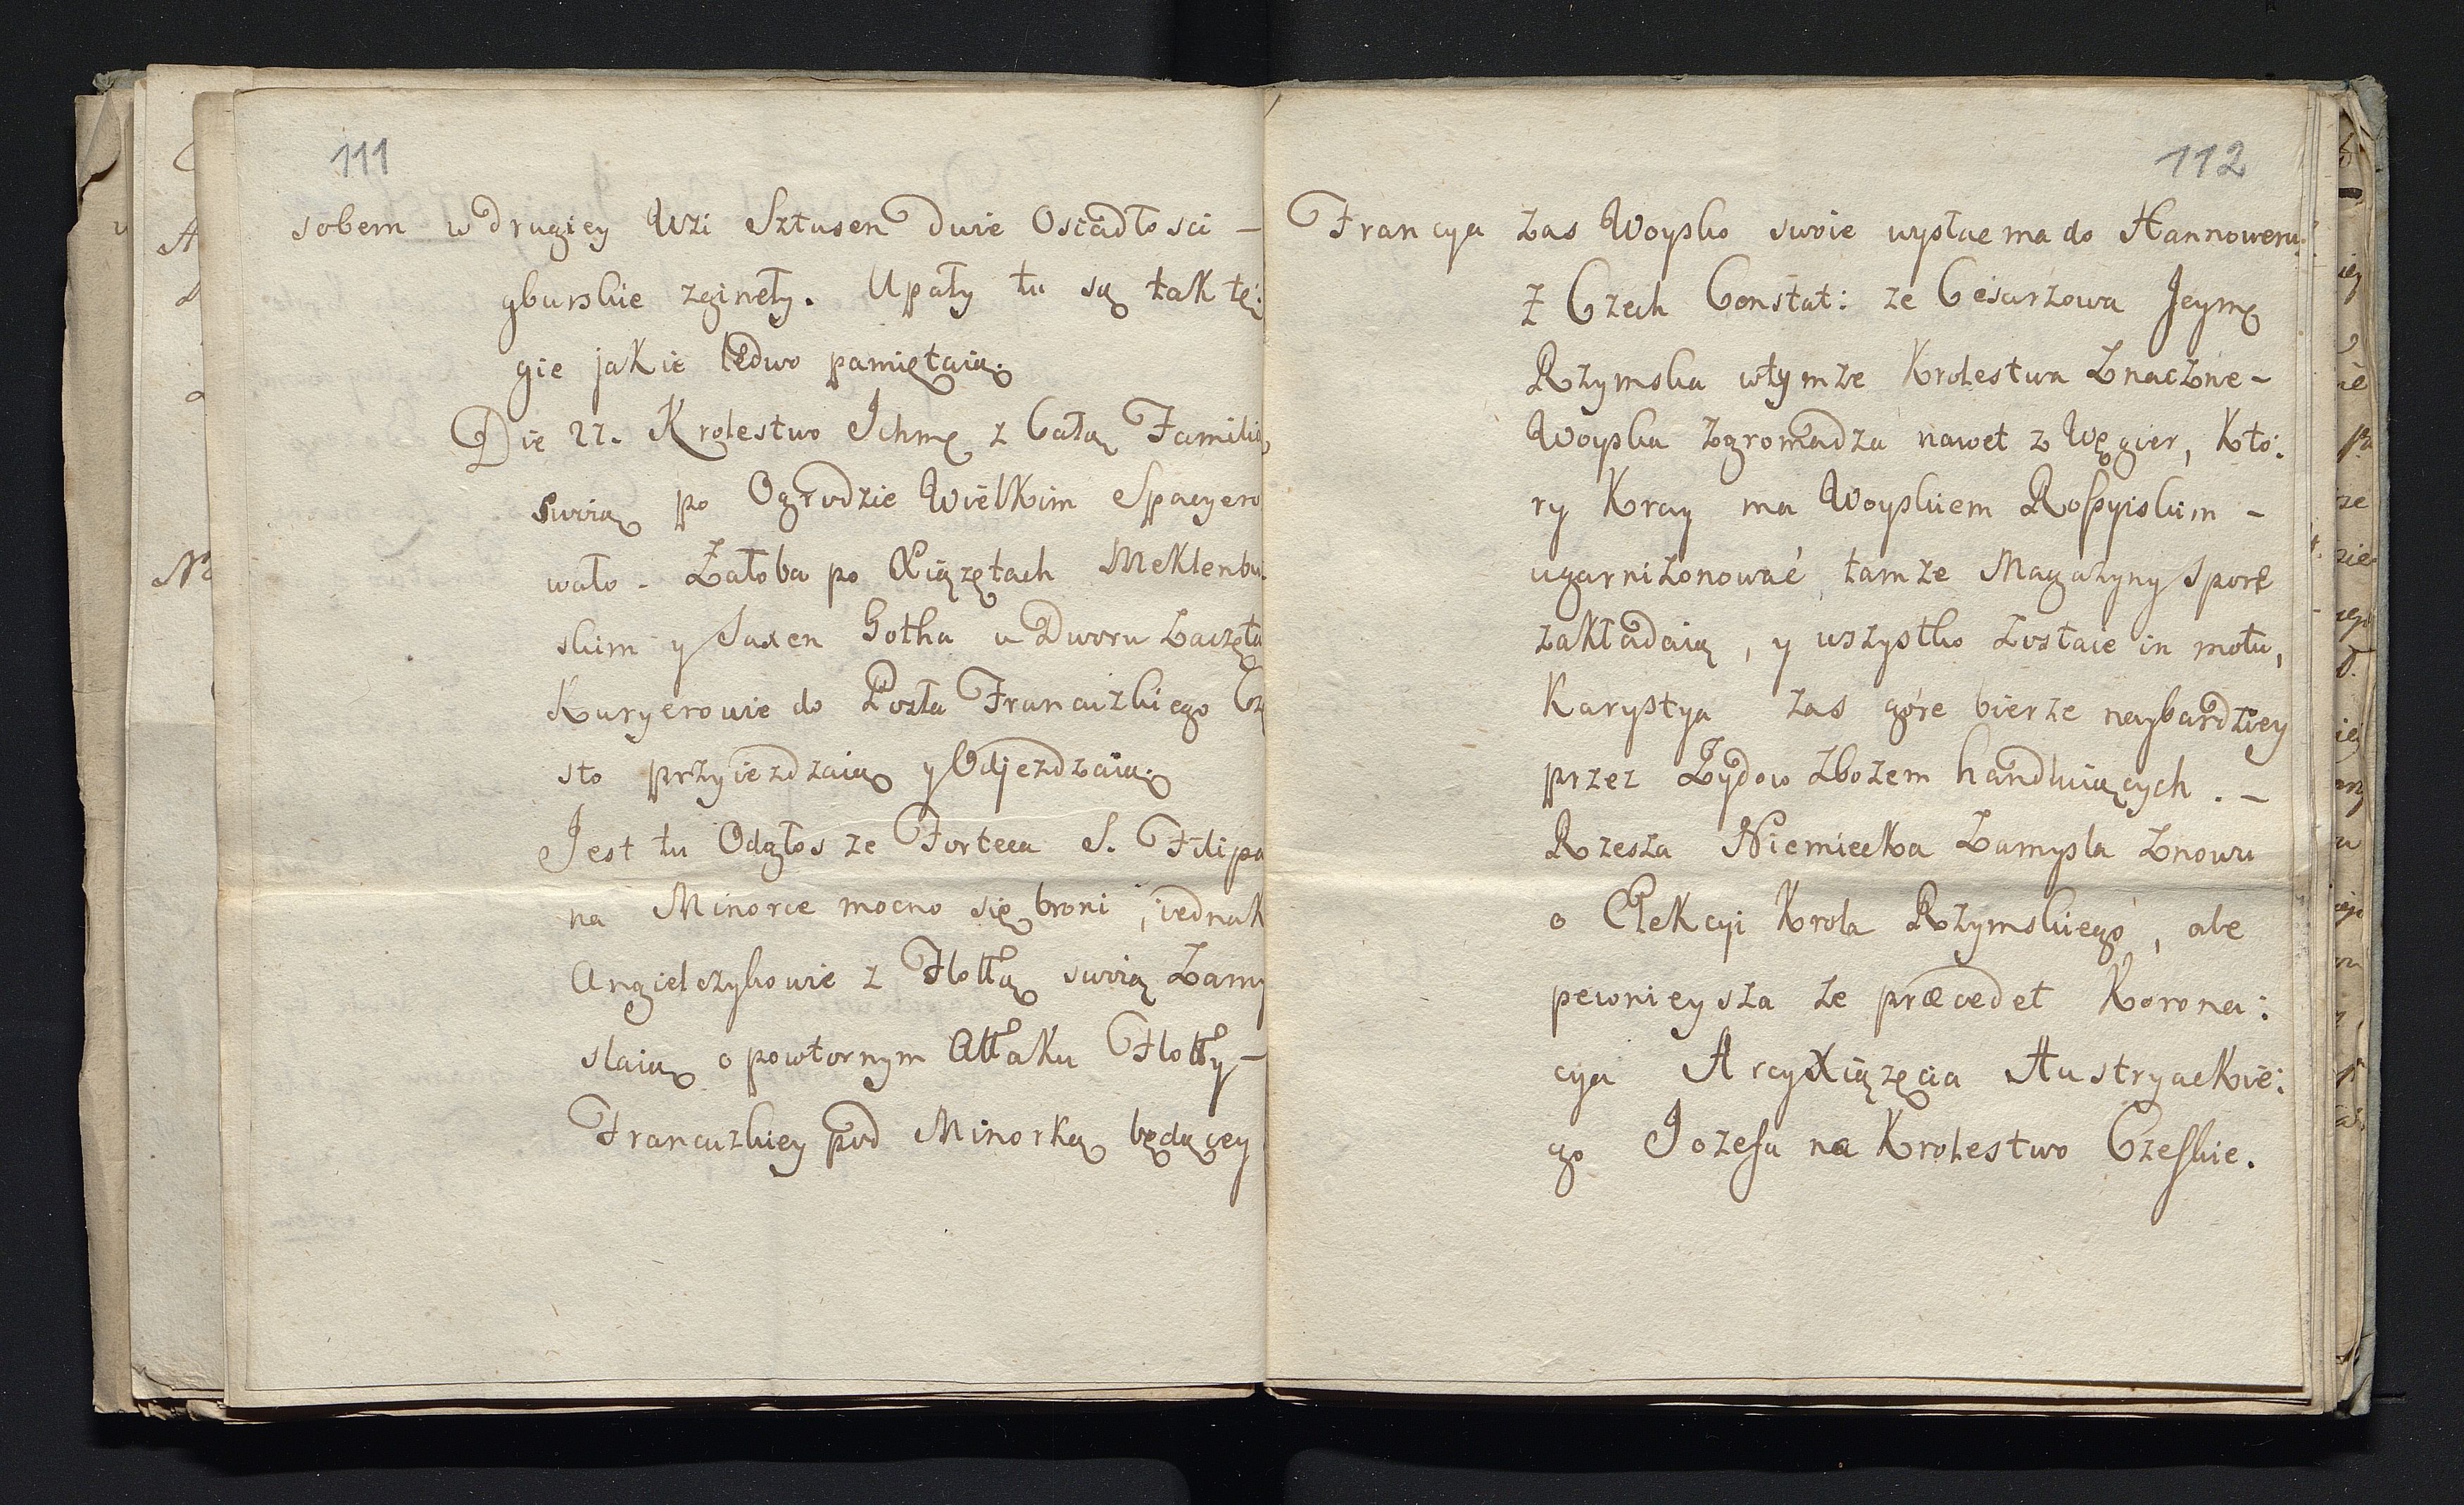 111
sobem w drugiey Wsi Sztusen dwie Osiadłosci –
gburskie zgineły. Upały tu są tak tę:
gie jakie ledwo pamiętaią.
Die 22. Krolestwo Ichmę z Całą Familią
swoią po Ogrodzie Wielkim Spacyero
wało – Załoba po Xiążętach Meklenbur
skim y Saxen Gotha u Dworu zaczęta
Kuryerowie do Posła Francuzkiego Czę
sto przyiezdzaią y Odjezdzaią.
Jest tu Odgłos ze Forteca S. Filipa
na Minorce mocno się broni, iednak
Angielczykowie z Flottą swoią zamy
slaią o powtornym Attaku Flotty –
Francuzkiey pod Minorką będącey
112
Francya zas Woysko swoie wysłac ma do Hannoweru.
Z Czech Constat: ze Cesarzowa Jeymę
Rzymska w tymze Krolestwa znaczne –
Woyska zgromadza nawet z Węgier, Kto:
ry Kray ma Woyskiem Rossyiskim –
ugarnizonować, tamze Magazyny spore
zakładaią, y wszystko zostaie in motu,
Karystya zas góre bierze naybardziey
przez Zydow zbozem handluiących. –
Rzesza Niemiecka zamysla znowu
o Elekcyi Krola Rzymskiego, ale
pewnieysza ze præcedet Korona:
cya ArcyXiązęcia Austryackie:
go Jozefa na Krolestwo Czeskie.